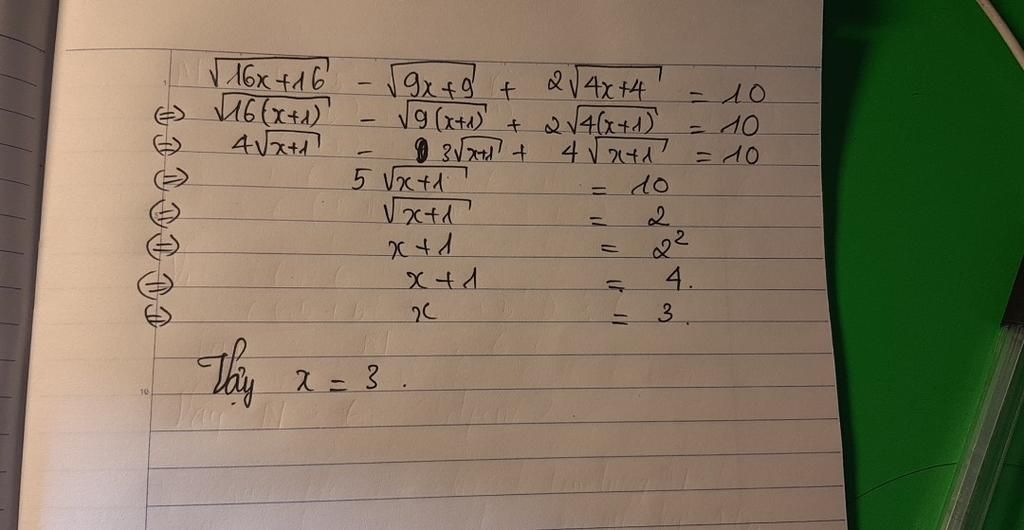 √16x+16 − √9x+9 + 2√4x+4 = 10
⇔ √16(x+1) − √9(x+1) + 2√4(x+1) = 10
⇔ 4√x+1 − 3√x+1 + 4√x+1 = 10
⇔ 5√x+1 = 10
⇔ √x+1 = 2
⇔ x+1 = 2²
⇔ x+1 = 4.
⇔ x = 3.
Vậy x = 3.